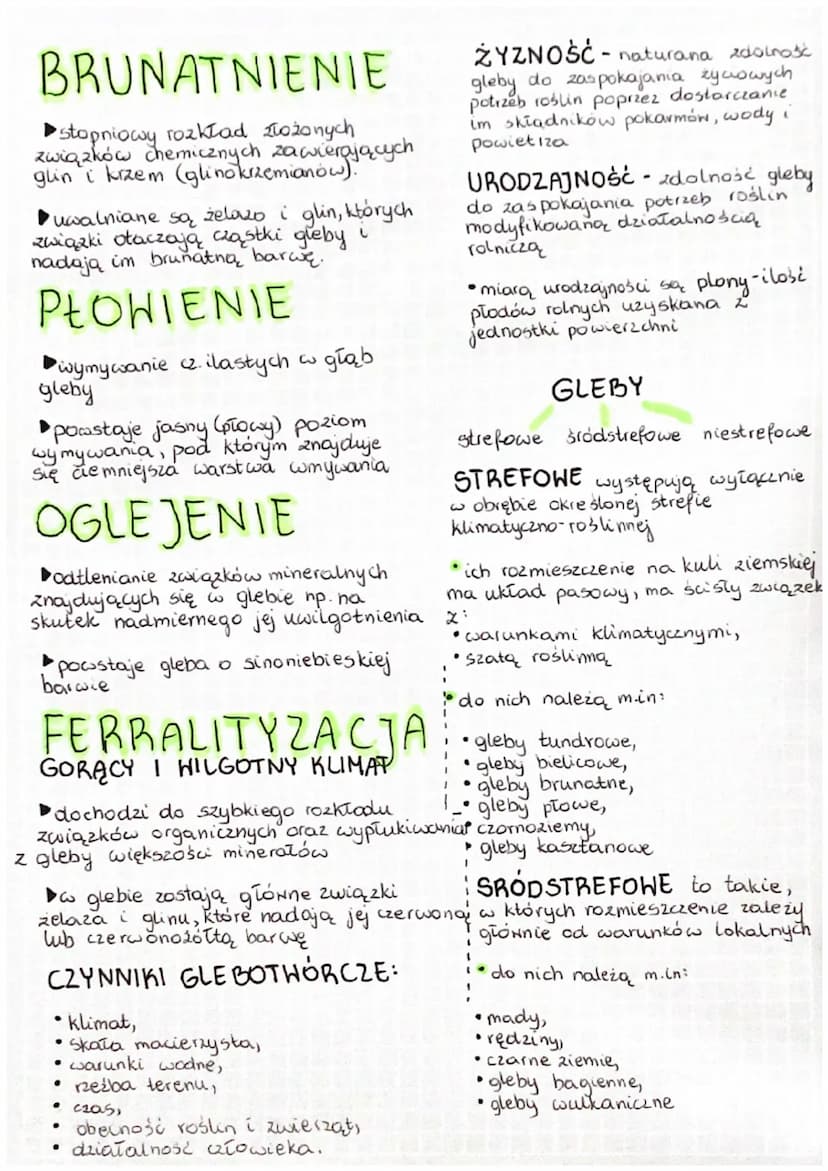 BRUNATNIENIE
▶stopniowy rozkład złożonych
związków chemicznych zawierających
glin i krzem (glinokrzemianów).
▶uwalniane są żelazo i glin, których
związki otaczają cząstki gleby i
nadają im brunatną barwę.
PŁOWIENIE
▶wymywanie cz. ilastych w głąb
gleby
▶powstaje jasny (płowy) poziom
wymywania, pod którym znajduje
się ciemniejsza warstwa wmywania
OGLEJENIE
▶odtlenianie związków mineralnych
znajdujących się w glebie np. na
skutek nadmiernego jej uwilgotnienia
▶powstaje gleba o sinoniebieskiej
barwie
FERRALITYZACJA
GORĄCY I WILGOTNY KLIMAT
▶dochodzi do szybkiego rozkładu
związków organicznych oraz wypłukiwania
z gleby większości minerałów
▶w glebie zostają główne związki
żelaza i glinu, które nadają jej czerwoną
lub czerwonożółtą barwę
CZYNNIKI GLEBOTWÓRCZE:
• klimat,
• skała macierzysta,
• warunki wodne,
• rzeźba terenu,
• czas,
• obecność roślin i zwierząt,
• działalność człowieka.
ŻYZNOŚĆ - naturana zdolność
gleby do zaspokajania życiowych
potrzeb roślin poprzez dostarczanie
im składników pokarmów, wody i
powietrza
URODZAJNOŚĆ - zdolność gleby
do zaspokajania potrzeb roślin
modyfikowaną działalnością
rolniczą
• miarą urodzajności są plony - ilość
płodów rolnych uzyskana z
jednostki powierzchni
GLEBY
strefowe śródstrefowe niestrefowe
STREFOWE występują wyłącznie
w obrębie określonej strefie
klimatyczno-roślinnej
• ich rozmieszczenie na kuli ziemskiej
ma układ pasowy, ma ścisły związek
z:
• warunkami klimatycznymi,
• szatą roślinną
• do nich należą m.in:
• gleby tundrowe,
• gleby bielicowe,
• gleby brunatne,
• gleby płowe,
• czarnoziemy,
• gleby kasztanowe
ŚRÓDSTREFOWE to takie,
w których rozmieszczenie zależy
głównie od warunków lokalnych
• do nich należą m.in:
• mady,
• rędziny,
• czarne ziemie,
• gleby bagienne,
• gleby wulkaniczne